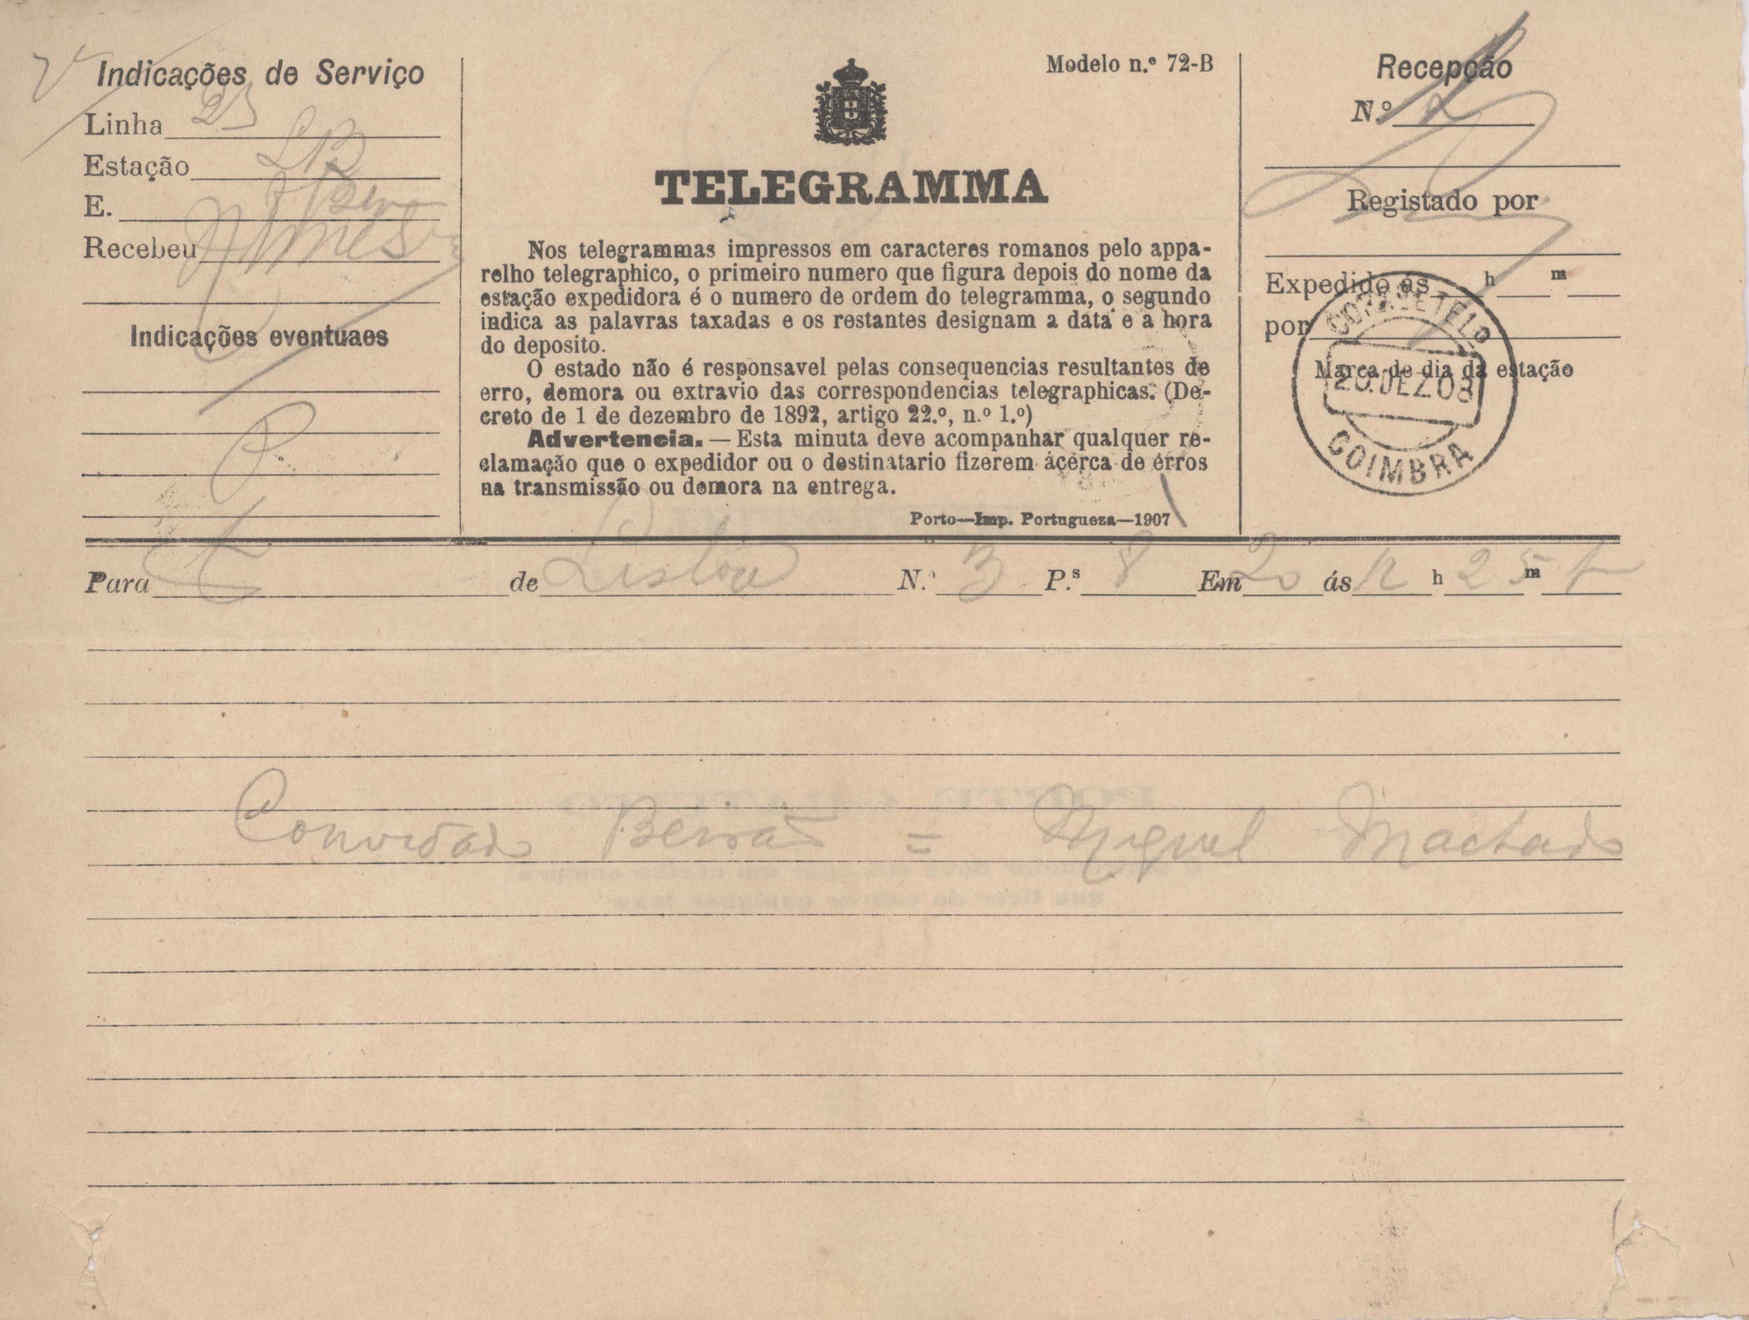 Indicações de Serviço
Linha 23
Estação LB
E.
Recebeu
Indicações eventuaes
Modelo n.º 72-B
TELEGRAMMA
Nos telegrammas impressos em caracteres romanos pelo appa-
relho telegraphico, o primeiro numero que figura depois do nome da
estação expedidora é o numero de ordem do telegramma, o segundo
indica as palavras taxadas e os restantes designam a data e a hora
do deposito.
O estado não é responsavel pelas consequencias resultantes de
erro, demora ou extravio das correspondencias telegraphicas. (De-
creto de 1 de dezembro de 1892, artigo 22.º, n.º 1.º)
Advertencia. — Esta minuta deve acompanhar qualquer re-
clamação que o expedidor ou o destinatario fizerem ácêrca de érros
na transmissão ou demora na entrega.
Porto—Imp. Portugueza—1907
Recepção
N.º 2
Registado por
Expedido ás h m
por
Marca de dia da estação
DEZ 08
COIMBRA
Para C de Lisboa N.º 3 P.s 8 Em 20 ás 12 h 25 m t
Convidado Beirão = Miguel Machado